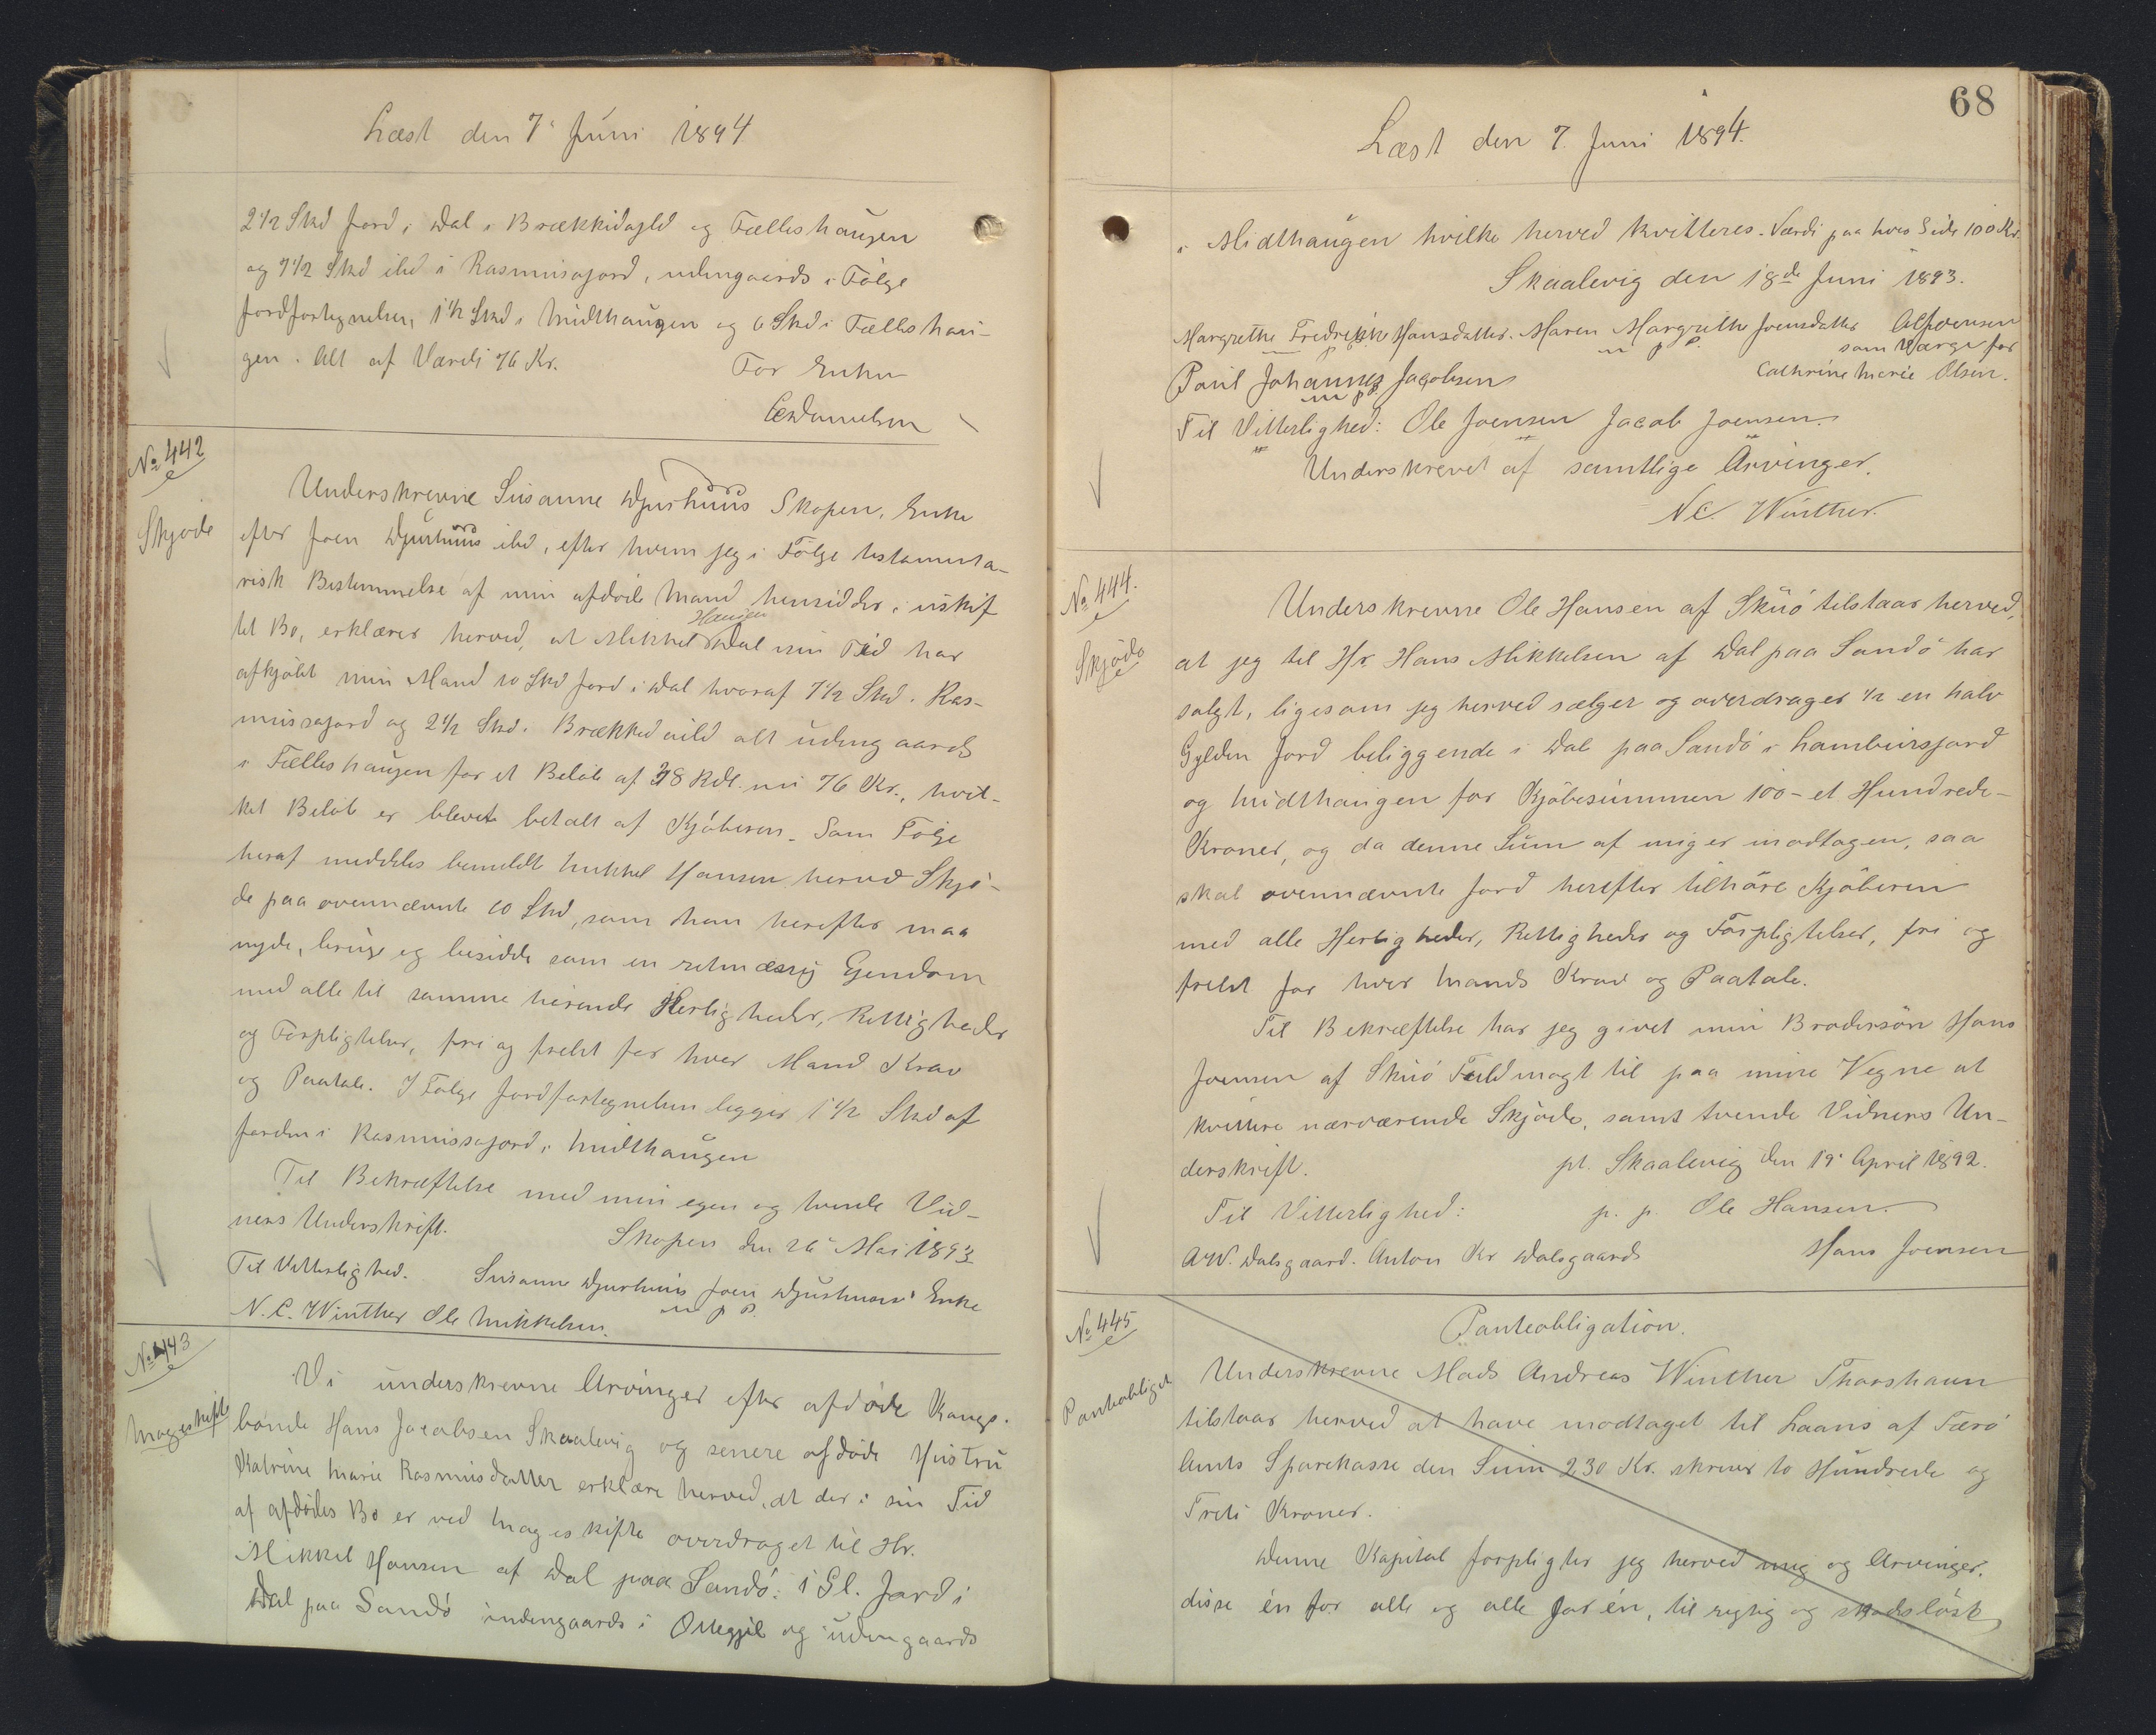 Læst den 7' Juni 1894
2 1/2 Skd Jord i Dal i Brækkidagld og Fælleshaugen
og 7 1/2 Skd ibd i Rasmusajord, udengaards i Følge
Jordfortegnelsen, 1 1/2 Skd i Midthaugen og 6 Skd i Fælleshau-
gen. Alt af Værdi 76 Kr. For Enken
No 442
Skjøde
Underskrevne Susanne Djurhuus Skopen, Enke
efter Joen Djurhuus ibd, efter hvem jeg i Følge testamenta-
risk Bestemmelse af min afdøde Mand hensidder i uskif
tet Bo, erklærer herved, at Mikkel Hansen Dal sin Tid har
afkjøbt min Mand 10 Skd Jord i Dal hvoraf 7 1/2 Skd i Ras-
mussajord og 2 1/2 Skd i Brækked alt udengaards
i Fælleshaugen for et Beløb af 38 Rdl. nu 76 Kr., hvil-
ket Beløb er blevet betalt af Kjøberen. Som Følge
heraf meddeles bemeldte Mikkel Hansen herved Skjø-
de paa ovennævnte 10 Skd, som han herefter maa
nyde, bruge og besidde som en retmæssig Ejendom
med alle til samme hørende Herligheder, Rettigheder
og Forpligtelser, fri og frelst for hver Mand Krav
og Paatale. I Følge Jordfortegnelsen legger 1 1/2 Skd af
Jorden i Rasmussajord, i Midthaugen
Til Bekræftelse med min egen og tvende Vid-
ners Underskrift. Skopen den 26' Mai 1893
Til Vitterlighed. Susanne Djurhuus Joen Djurhuus' Enke
N. C. Winther Ole Mikkelsen. m p P.
No 443
Mageskifte
Vi underskrevne Arvinger efter afdøde Kongs-
bonde Hans Jacobsen Skaalevig og senere afdøde Hustru
Katrine Marie Rasmusdatter erklære herved, at der i sin Tid
af afdødes Bo er ved Mageskifte overdraget til Hr.
Mikkel Hansen af Dal paa Sandø: 1 Gl. Jord i
Dal paa Sandø indengaards i Ottegjil og udengaards
68
Læst den 7. Juni 1894.
i Midthaugen hvilke herved kvitteres. Værdi paa hver Side 100 Kr.
Skaalevig den 18de Juni 1893.
Margrethe Fredrikke Hansdatter. Maren Margrethe Joensdatter
m p P. m p P. som Værge for
Poul Johannes Jacobsen Cathrine Marie Olsen.
m p P.
Til Vitterlighed: Ole Joensen Jacob Joensen.
Underskrevet af samtlige Arvinger.
N.C. Winther.
No 444.
Skjøde
Underskrevne Ole Hansen af Skuø tilstaar herved,
at jeg til Hr. Hans Mikkelsen af Dal paa Sandø har
solgt, ligesom jeg herved sælger og overdrager 1/2 en halv
Gylden Jord beliggende i Dal paa Sandø i Lambursjord
og Midthaugen for Kjøbesummen 100 - et Hundrede -
Kroner, og da denne Sum af mig er modtagen, saa
skal ovennævnte Jord herefter tilhøre Kjøberen
med alle Herligheder, Rettigheder og Forpligtelser, fri og
frelst for hver Mands Krav og Paatale.
Til Bekræftelse har jeg givet min Brodersøn Hans
Joensen af Skuø Fuldmagt til paa mine Vegne at
kvittere nærværende Skjøde, samt tvende Vidners Un-
derskrift. pt. Skaalevig den 19' April 1892.
Til Vitterlighed: p. p. Ole Hansen.
A.W. Dalsgaard. Anton Kr Dalsgaard Hans Joensen
No 445
Panteobligat
Panteobligation.
Underskrevne Mads Andreas Winther Thorshavn
tilstaar herved at have modtaget til Laans af Færø
Amts Sparekasse den Sum 230 Kr. skriver to Hundrede og
Treti Kroner.
Denne Kapital forpligter jeg herved mig og Arvinger,
disse én for alle og alle for én, til rigtig og skadesløst